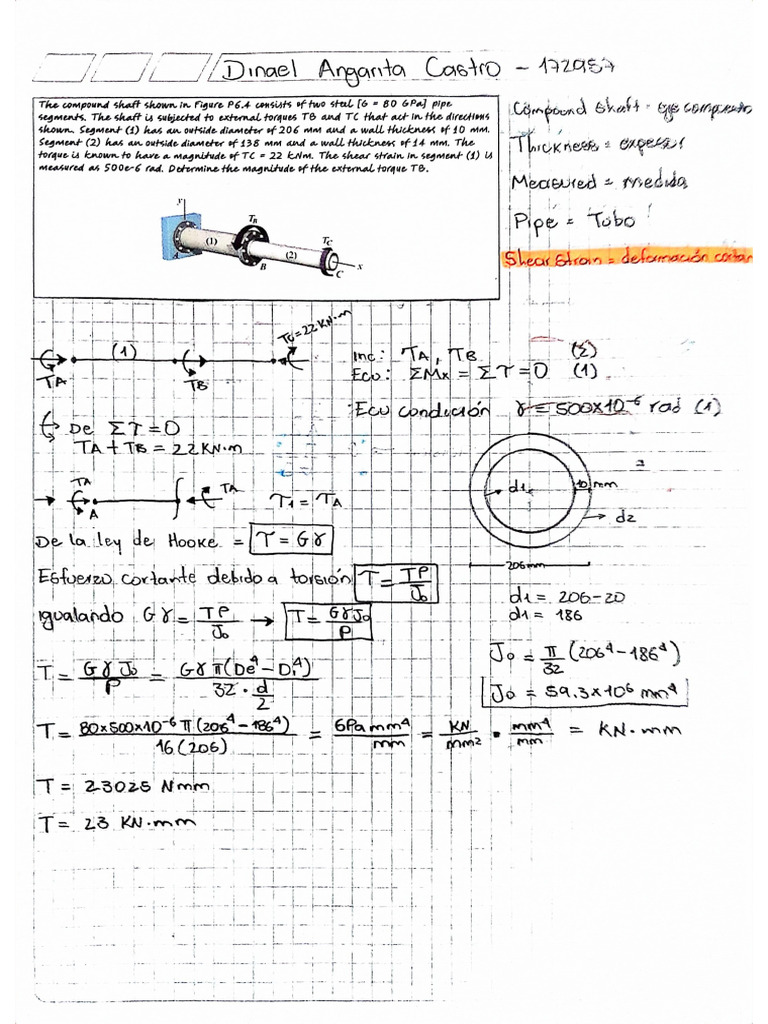 Dinael Angarita Castro - 172957
The compound shaft shown in Figure P6.4 consists of two steel [G = 80 GPa] pipe
segments. The shaft is subjected to external torques TB and TC that act in the directions
shown. Segment (1) has an outside diameter of 206 mm and a wall thickness of 10 mm.
Segment (2) has an outside diameter of 138 mm and a wall thickness of 14 mm. The
torque is known to have a magnitude of TC = 22 kNm. The shear strain in segment (1) is
measured as 500e-6 rad. Determine the magnitude of the external torque TB.
y
TB
(1)
TC
(2)
A
B
C
x
Compound shaft = eje compuesto
Thickness = espesor
Measured = medida
Pipe = Tubo
Shear Strain = deformación cortan
(1)
TC = 22 KN·m
TA
TB
Inc: TA, TB (2)
Ecu: ΣMx = ΣT = 0 (1)
Ecu condición γ = 500x10⁻⁶ rad (1)
De ΣT = 0
TA + TB = 22 KN·m
TA
A
TA
T1 = TA
d1
10 mm
d2
206mm
De la ley de Hooke = τ = Gγ
Esfuerzo cortante debido a torsión τ = TP/Jo
igualando Gγ = TP/Jo → T = GγJo/P
d1 = 206-20
d1 = 186
Jo = π/32 (206⁴ - 186⁴)
Jo = 59.3x10⁶ mm⁴
T = GγJo/P = Gγπ(De⁴ - Di⁴)/32 · d/2
T = 80x500x10⁻⁶ π(206⁴ - 186⁴)/16(206) = GPa mm⁴/mm = KN/mm² · mm⁴/mm = KN·mm
T = 23025 Nmm
T = 23 KN·mm